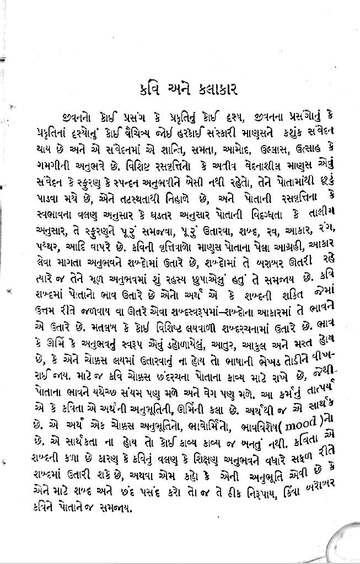 કવિ અને કલાકાર
જીવનનો કોઈ પ્રસંગ કે પ્રકૃતિનું કોઈ દૃશ્ય, જીવનના પ્રસંગોનું કે
પ્રકૃતિનાં દૃશ્યોનું કોઈ વૈચિત્ર્ય જોઈ હરકોઈ સંસ્કારી માણસને કશુંક સંવેદન
થાય છે અને એ સંવેદનમાં એ શાન્તિ, સમતા, આમોદ, ઉલ્લાસ, ઉત્સાહ કે
ગમગીની અનુભવે છે. વિશિષ્ટ રસવૃત્તિનો કે અતીવ વેદનાશીલ માણસ એવું
સંવેદન કે સ્ફુરણ કે સ્પન્દન અનુભવીને બેસી નથી રહેતો, તેને પોતામાંથી છૂટું
પાડવા મથે છે, એને તટસ્થતાથી નિહાળે છે, અને પોતાની રસવૃત્તિના કે
સ્વભાવના વલણ અનુસાર કે ઘડતર અનુસાર પોતાની વિદગ્ધતા કે તાલીમ
અનુસાર, તે સ્ફુરણને પૂરું સમજવા, પૂરું ઉતારવા, શબ્દ, રવ, આકાર, રંગ,
પથ્થર, આદિ વાપરે છે. કવિની વૃત્તિવાળો માણસ પોતાના પેલા આગ્રહી, આકાર
લેવા માગતા અનુભવને શબ્દોમાં ઉતારે છે, શબ્દોમાં તે બરાબર ઊતરી રહે
ત્યારે જ તેને મૂળ અનુભવમાં શું રહસ્ય છુપાએલું હતું તે સમજાય છે. કવિ
શબ્દમાં પોતાનો ભાવ ઉતારે છે એનો અર્થ એ કે શબ્દની શક્તિ જેમાં
ઉત્તમ રીતે જળવાય વા ઊતરે એવા શબ્દસ્વરૂપમાં–શબ્દોના આકારમાં તે ભાવને
એ ઉતારે છે. મતલબ કે કોઈ વિશિષ્ટ લયવાળી શબ્દરચનામાં ઉતારે છે. ભાવ
કે ઊર્મિ કે અનુભવનું સ્વરૂપ એવું ડહોળાએલું, આતુર, આકુલ અને મસ્ત હોય
છે, કે એને ચોક્કસ લયમાં ઉતારવાનું ના હોય તો ભાષાની ભેખડ તોડીને વીખ-
રાઈ જાય. માટે જ કવિ ચોક્કસ છંદરચના પોતાના કાવ્ય માટે રાખે છે, જેથી
પોતાના ભાવને યથેચ્છ સંયમ પણ મળે અને વેગ પણ મળે. આ કર્મનું તાત્પર્ય
એ કે કવિતા એ અર્થની અનુભૂતિની, ઊર્મિની કલા છે. અર્થથી જ એ સાર્થક
છે. એ અર્થ એક ચોક્કસ અનુભૂતિનો, ભાવોર્મિનો, ભાવવિશેષ(mood)નો
છે. એ સાર્થકતા ના હોય તો કોઈ કાવ્ય કાવ્ય જ બનતું નથી. કવિતા એ
શબ્દની કળા છે કારણ કે કવિનું વલણ કે શિક્ષણ અનુભવને વધારે સફળ રીતે
શબ્દમાં ઉતારી શકે છે, અથવા એમ કહો કે એની અનુભૂતિ એવી છે કે
એને માટે શબ્દ અને છંદ પસંદ કરો તો જ તે ઠીક નિરૂપાય, કિંવા બરાબર
કવિને પોતાને જ સમજાય.